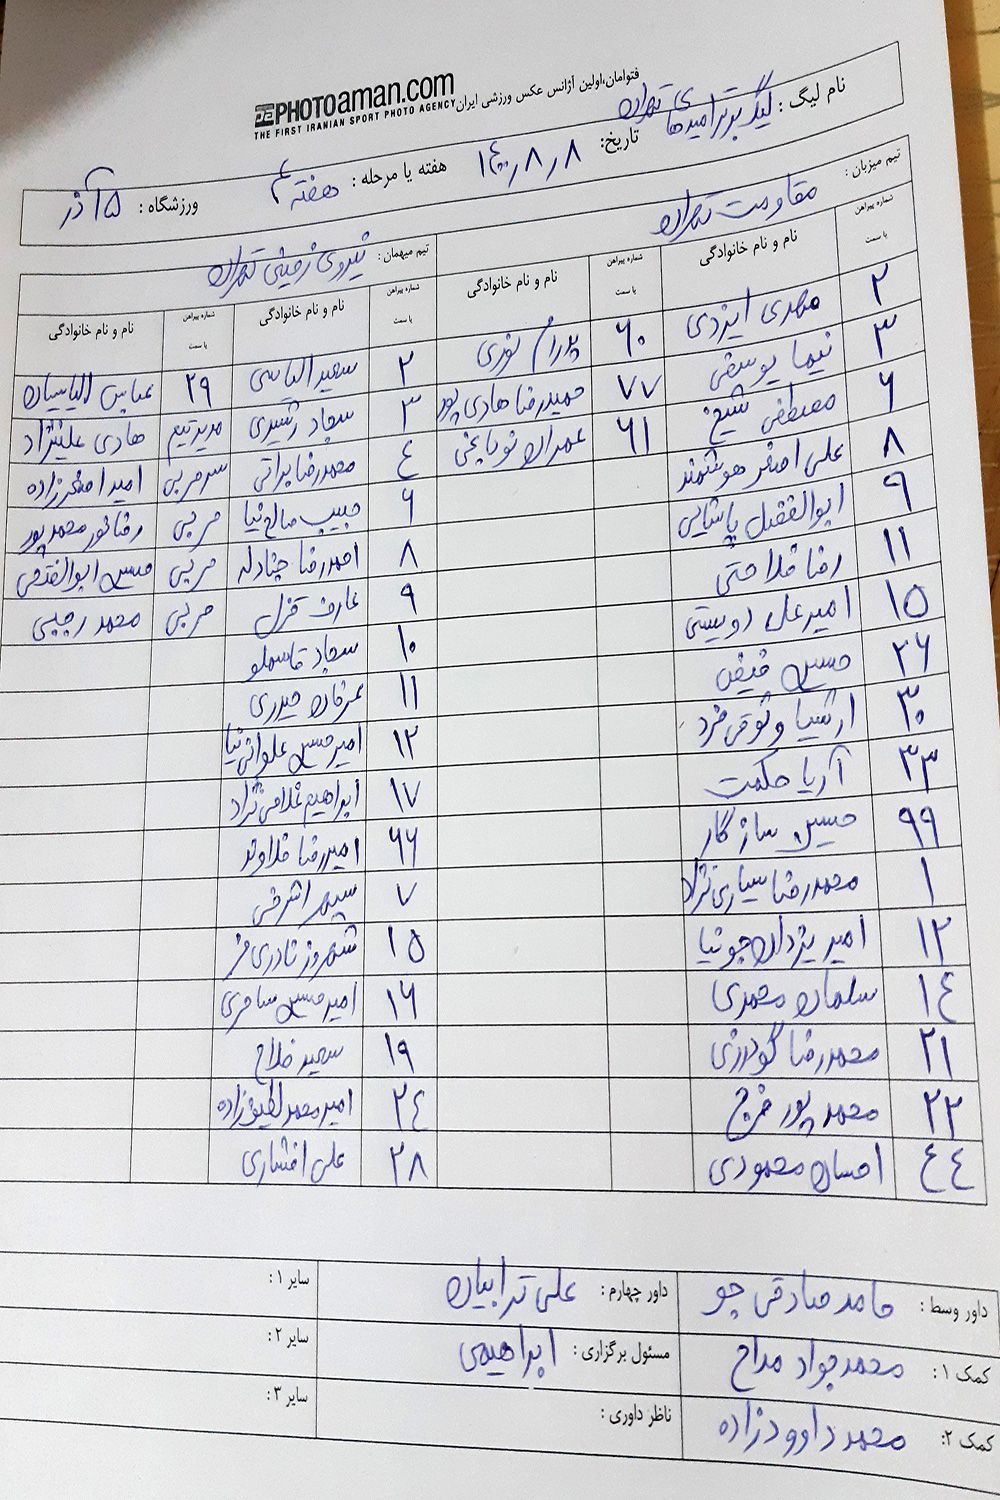 PHOTOaman.com
THE FIRST IRANIAN SPORT PHOTO AGENCY
فتوامان،اولین آژانس عکس ورزشی ایران
نام لیگ : لیگ برتر امیدهای تهران
تاریخ: ۱۴۰۰٫۸٫۸ هفته یا مرحله : هفته ۴ ورزشگاه : ۱۵ آذر
تیم میزبان : مقاومت تهران
تیم میهمان : نیروی زمینی تهران
شماره پیراهن یا سمت نام و نام خانوادگی شماره پیراهن یا سمت نام و نام خانوادگی شماره پیراهن یا سمت نام و نام خانوادگی شماره پیراهن یا سمت نام و نام خانوادگی
۲ مهدی ایزدی ۶۰ پدرام نوری ۲ سعید الیاسی ۲۹ عباس الیاسیان
۳ نیما یوسفی ۷۷ حمیدرضا هادی پور ۳ سجاد رشیدی مدیر تیم هادی علینژاد
۶ مصطفی شیخ ۶۱ عمران ۴ محمدرضا براتی سرمربی امید اصغرزاده
۸ علی اصغر هوشمند ۶ حبیب صالح نیا مربی رضا نورمحمدپور
۹ ابوالفضل پاشایی ۸ احمدرضا مربی حسین ابوالفتحی
۱۱ رضا فلاحتی ۹ عارف قزل مربی محمد رجبی
۱۵ امیرعلی دوستی ۱۰ سجاد قاسملو
۲۶ حسین فیضی ۱۱ عرفان حیدری
۳۰ ارشیا وثوقی فرد ۱۲ امیرحسین علوانی نیا
۳۳ آریا حکمت ۱۷ ابراهیم غلامی نژاد
۹۹ حسین سازگار ۶۶ امیررضا قلاوند
۱ محمدرضا سیاری نژاد ۷ سپهر اشرفی
۱۲ امیر یزدان جونیا ۱۵ شهروز نادری فر
۱۴ سلمان محمدی ۱۶ امیرحسین ساحری
۲۱ محمدرضا گودرزی ۱۹ سعید فلاح
۲۲ محمد پورفرج ۲۴ امیرمحمد لطیف زاده
۴۴ احسان محمودی ۲۸ علی افشاری
داور وسط : حامد صادقی جو داور چهارم : علی ترابیان سایر ۱ :
کمک ۱ : محمدجواد مداح مسئول برگزاری : ابراهیمی سایر ۲ :
کمک ۲: محمد داوودزاده ناظر داوری : سایر ۳ :